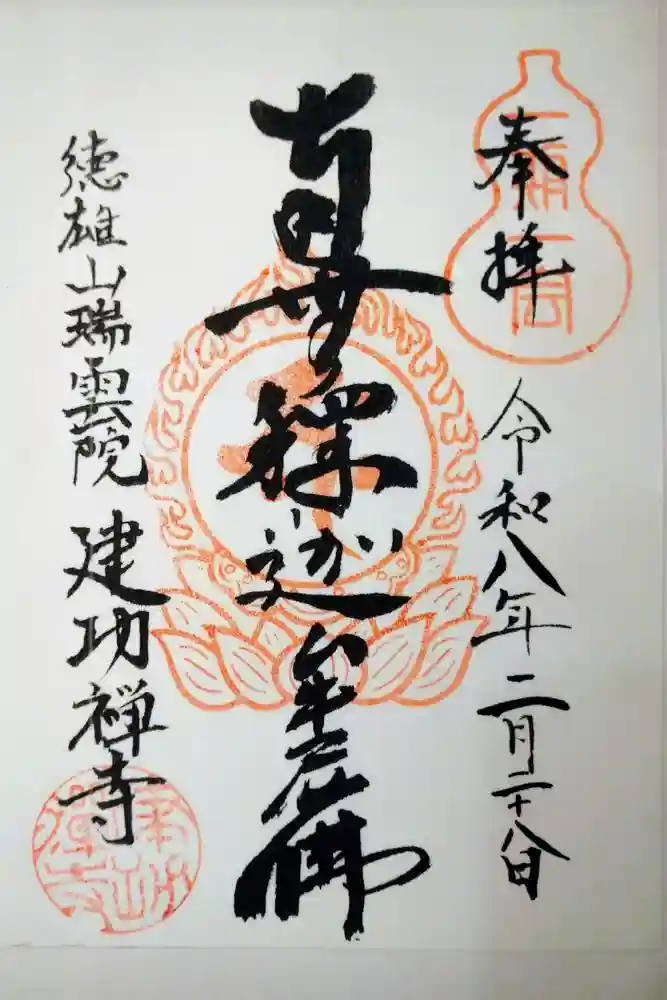 奉拝
令和八年二月二十八日
南無釋迦牟尼佛
徳雄山瑞雲院 建功禅寺